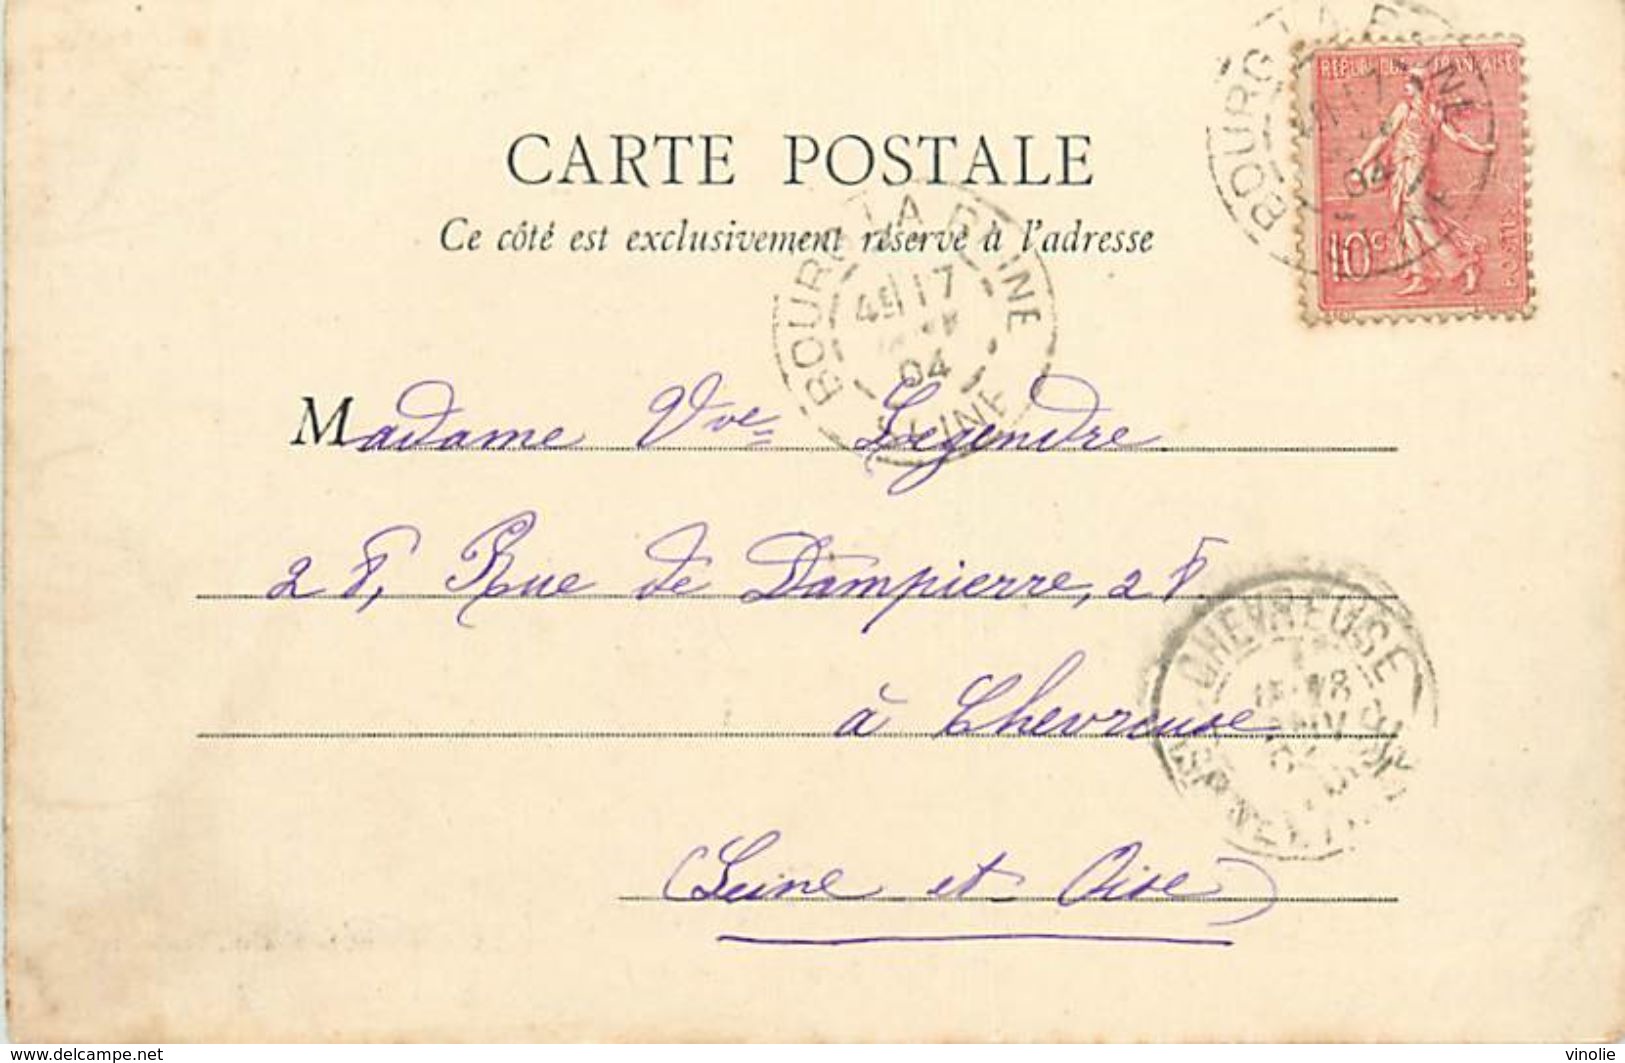 REPUBLIQUE FRANÇAISE
10c
POSTES
BOURG LA REINE
17
04
SEINE
CARTE POSTALE
Ce côté est exclusivement réservé à l'adresse
BOURG LA REINE
4E 17
04
SEINE
Madame Vve Legendre
28, Rue de Dampierre, 28.
à Chevreuse
(Seine et Oise)
CHEVREUSE
https://www.delcampe.net
vinolie